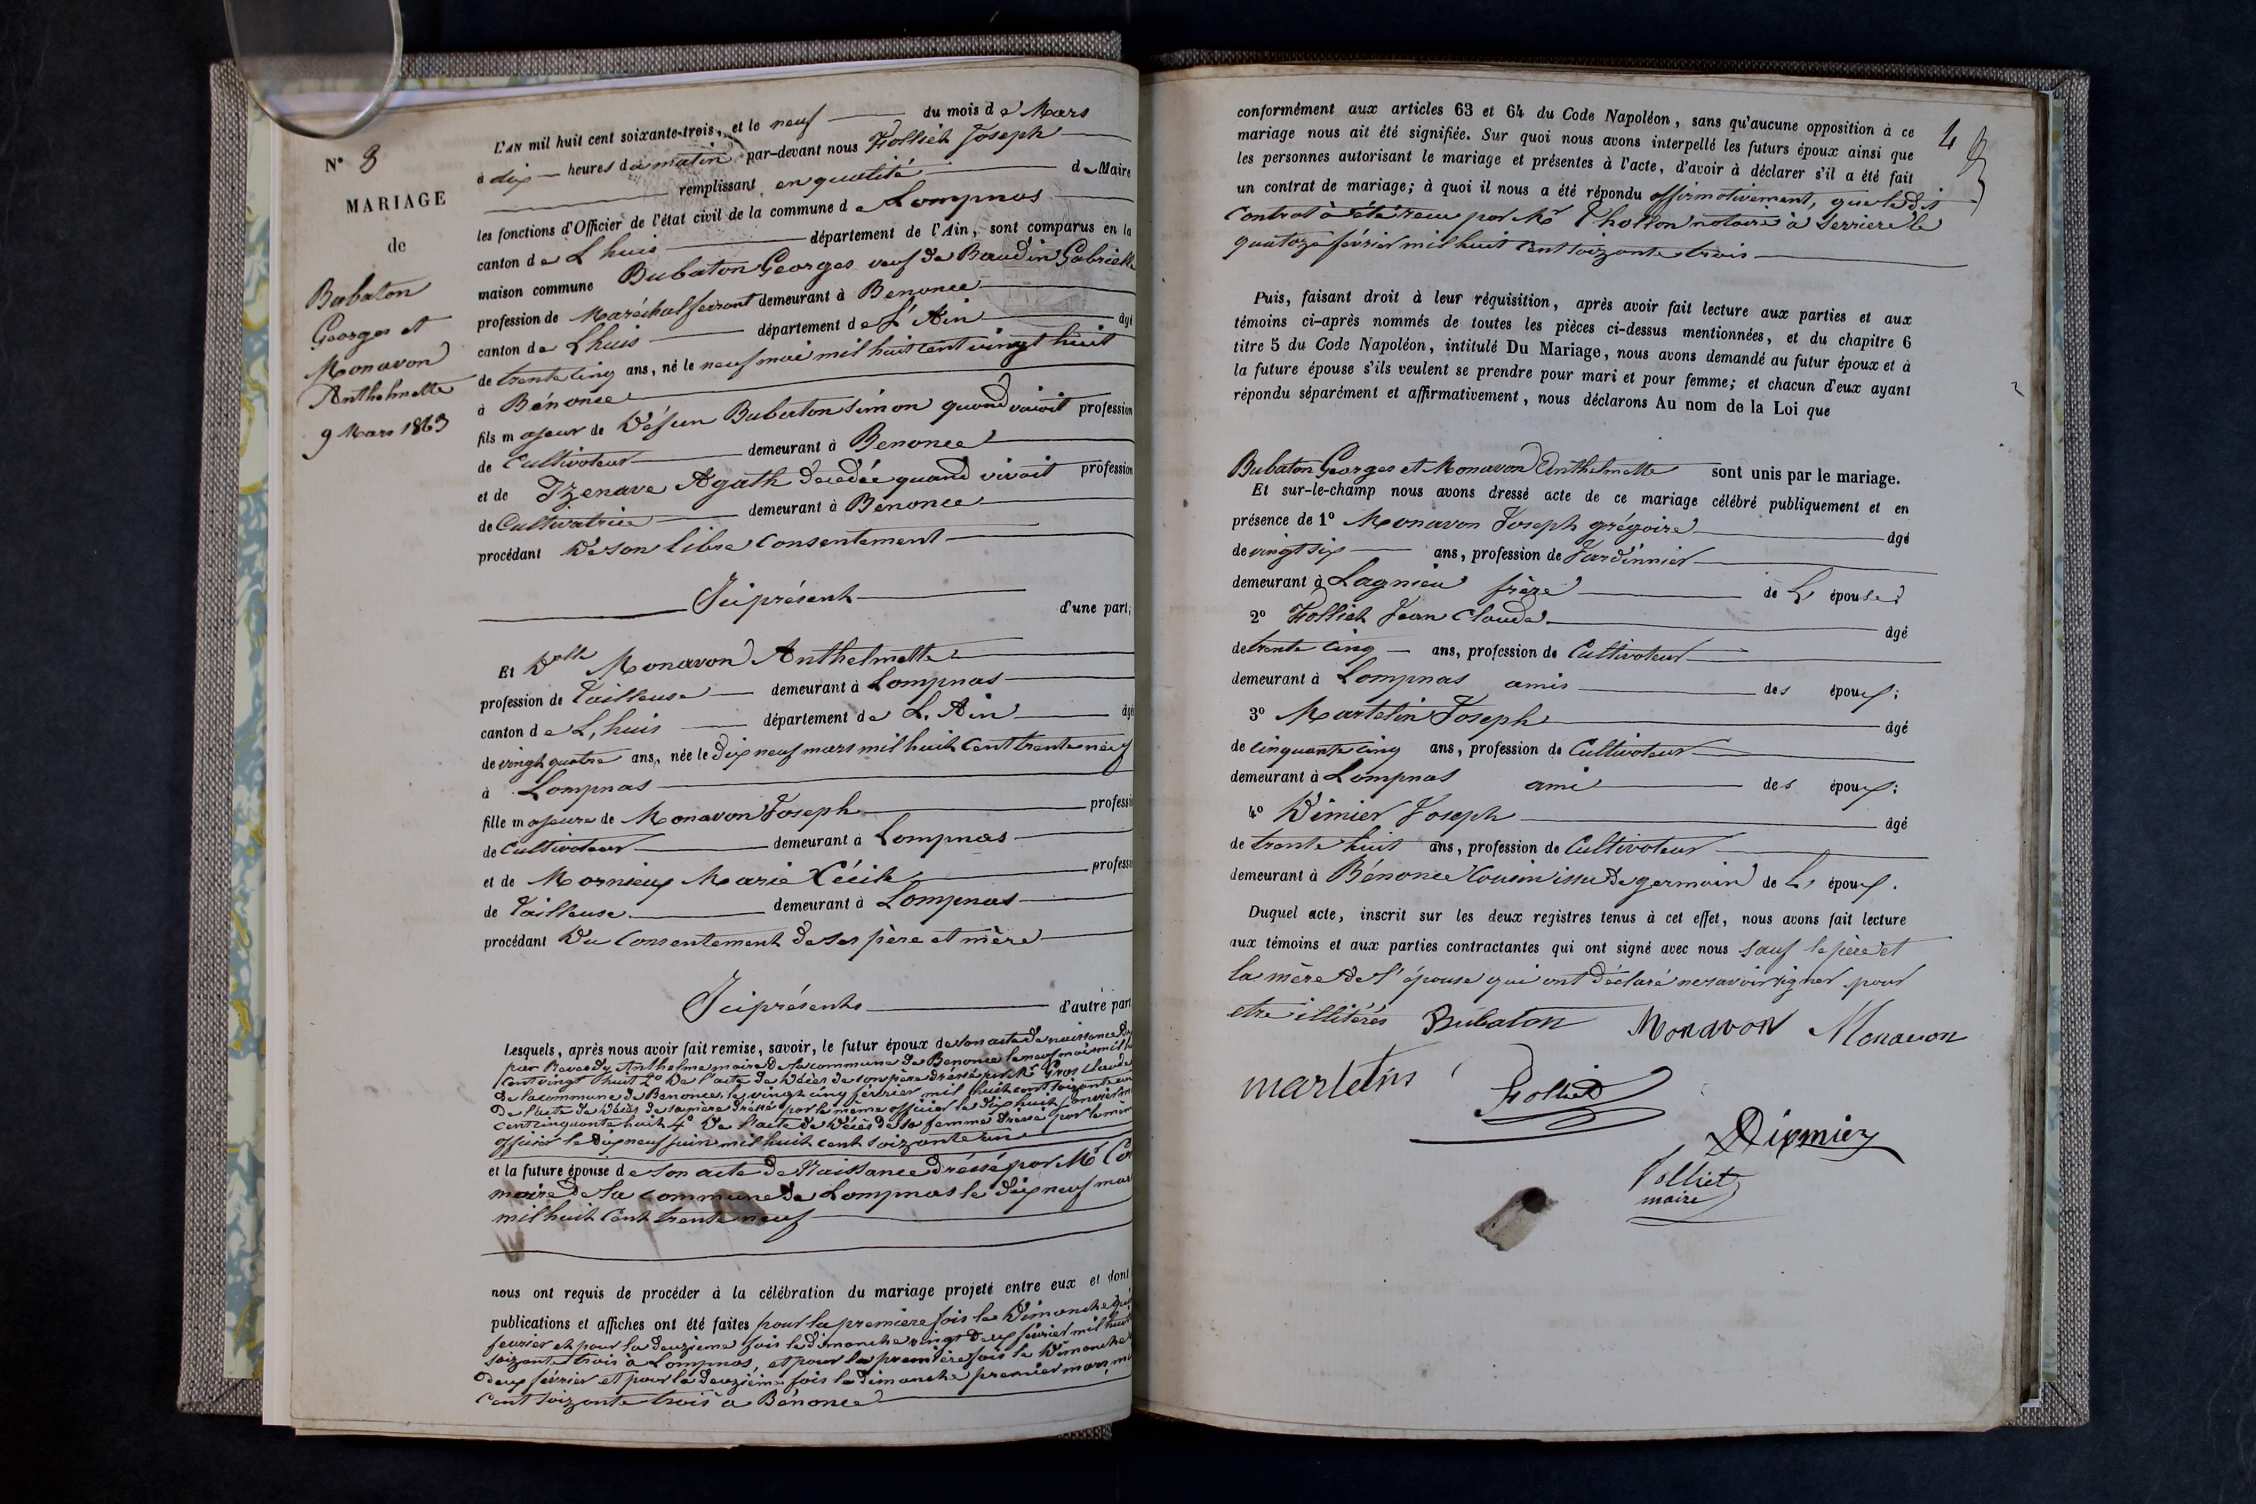 N° 3
MARIAGE
de
Bubaton
Georges et
Monavon
Anthelmette
9 Mars 1863
L'AN mil huit cent soixante-trois, et le neuf du mois de Mars
à dix heures du matin par-devant nous Folliet Joseph
remplissant en qualité de Maire
les fonctions d'Officier de l'état civil de la commune de Lompnas
canton de Lhuis département de l'Ain, sont comparus en la
maison commune Bubaton Georges veuf de Baudin Gabrielle
profession de Maréchal ferrant demeurant à Benonce
canton de Lhuis département de L'Ain âgé
de trente cinq ans, né le neuf mai mil huit cent vingt huit
à Bénonce
fils majeur de Défun Bubaton Simon quand vivait profession
de Cultivateur demeurant à Benonce
et de Izenave Agath décédée quand vivait profession
de Cultivatrice demeurant à Benonce
procédant De son libre Consentement
Ici présent d'une part;
Et Dlle Monavon Anthelmette
profession de Tailleuse demeurant à Lompnas
canton de L,huis département de L,Ain âgé
de vingt quatre ans, née le dix neuf mars mil huit cent trente neuf
à Lompnas
fille majeure de Monavon Joseph professi
de Cultivateur demeurant à Lompnas
et de Mornieux Marie Cécile professi
de Tailleuse demeurant à Lompnas
procédant Du Consentement de ses père et mère
Ici présents d'autre part
Lesquels, après nous avoir fait remise, savoir, le futur époux de son acte de naissance
par Anthelme maire de la commune de Benonce le neuf mai mil
cent vingt huit 2° De l'acte de décès de son père dressé par Mr Gros Claude
de la commune de Benonce, le vingt cinq février mil huit cent soixante un
De l'acte de décès de sa mère dressé par le même officier le dix huit
cent cinquante huit 4° De l'acte de décès de sa femme dressé par le mêm
officier le dix neuf juin mil huit cent soixante un
et la future épouse de son acte de Naissance dressé par Mr
maire de la commune de Lompnas le dix neuf mar
mil huit Cent trente neuf
nous ont requis de procéder à la célébration du mariage projeté entre eux et dont
publications et affiches ont été faites pour la première fois le Dimanche
fevrier et pour la deuxieme fois le dimanche vingt deux février mil huit
soixante trois à Lompnas, et pour la première fois le Dimanche
deux février et pour la deuxième fois le dimanche premier mars mi
cent soixante trois à Bénonce
4
conformément aux articles 63 et 64 du Code Napoléon, sans qu'aucune opposition à ce
mariage nous ait été signifiée. Sur quoi nous avons interpellé les futurs époux ainsi que
les personnes autorisant le mariage et présentes à l'acte, d'avoir à déclarer s'il a été fait
un contrat de mariage; à quoi il nous a été répondu affirmativement, que le dit
Contrat à été reçu par Mr Thollon notaire à Serriere le
quatorze février mil huit cent soixante trois
Puis, faisant droit à leur réquisition, après avoir fait lecture aux parties et aux
témoins ci-après nommés de toutes les pièces ci-dessus mentionnées, et du chapitre 6
titre 5 du Code Napoléon, intitulé Du Mariage, nous avons demandé au futur époux et à
la future épouse s'ils veulent se prendre pour mari et pour femme; et chacun d'eux ayant
répondu séparément et affirmativement, nous déclarons Au nom de la Loi que
Bubaton Georges et Monavon Anthelmette sont unis par le mariage.
Et sur-le-champ nous avons dressé acte de ce mariage célébré publiquement et en
présence de 1° Monavon Joseph grégoire âgé
de vingt six ans, profession de Jardinnier
demeurant à Lagnieu frère de L' épouse;
2° Folliet Jean Claude âgé
de trente cinq ans, profession de Cultivateur
demeurant à Lompnas amis des époux;
3° Martelin Joseph âgé
de cinquante cinq ans, profession de Cultivateur
demeurant à Lompnas ami des époux;
4° Dimier Joseph âgé
de trente huit ans, profession de Cultivateur
demeurant à Bénonce Cousin issu de germain de L' époux.
Duquel acte, inscrit sur les deux registres tenus à cet effet, nous avons fait lecture
aux témoins et aux parties contractantes qui ont signé avec nous sauf le père et
la mère de l'épouse qui ont déclaré ne savoir signer pour
etre illitérés Bubaton Monavon Monavon
martelin Folliet
Dixmier
Folliet
maire